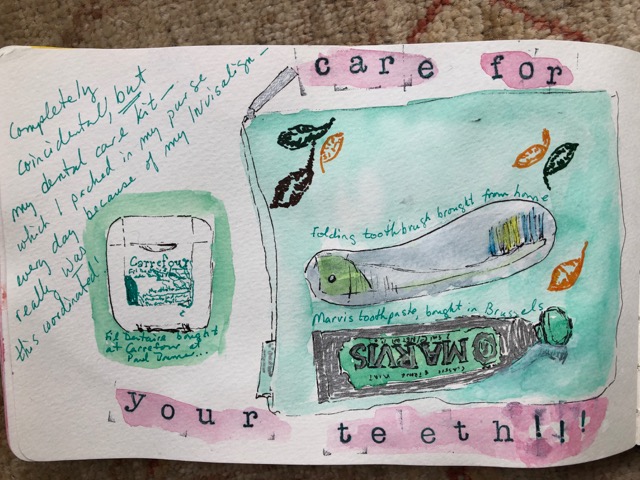 care for
Completely
coincidental, but
my dental care kit —
which I packed in my purse
every day because of my Invisalign —
really was
this coordinated!
Folding toothbrush brought from home
Carrefour
Marvis toothpaste, bought in Brussels
MARVIS
Fil Dentaire bought
at Carrefour et
Paul
your teeth!!!